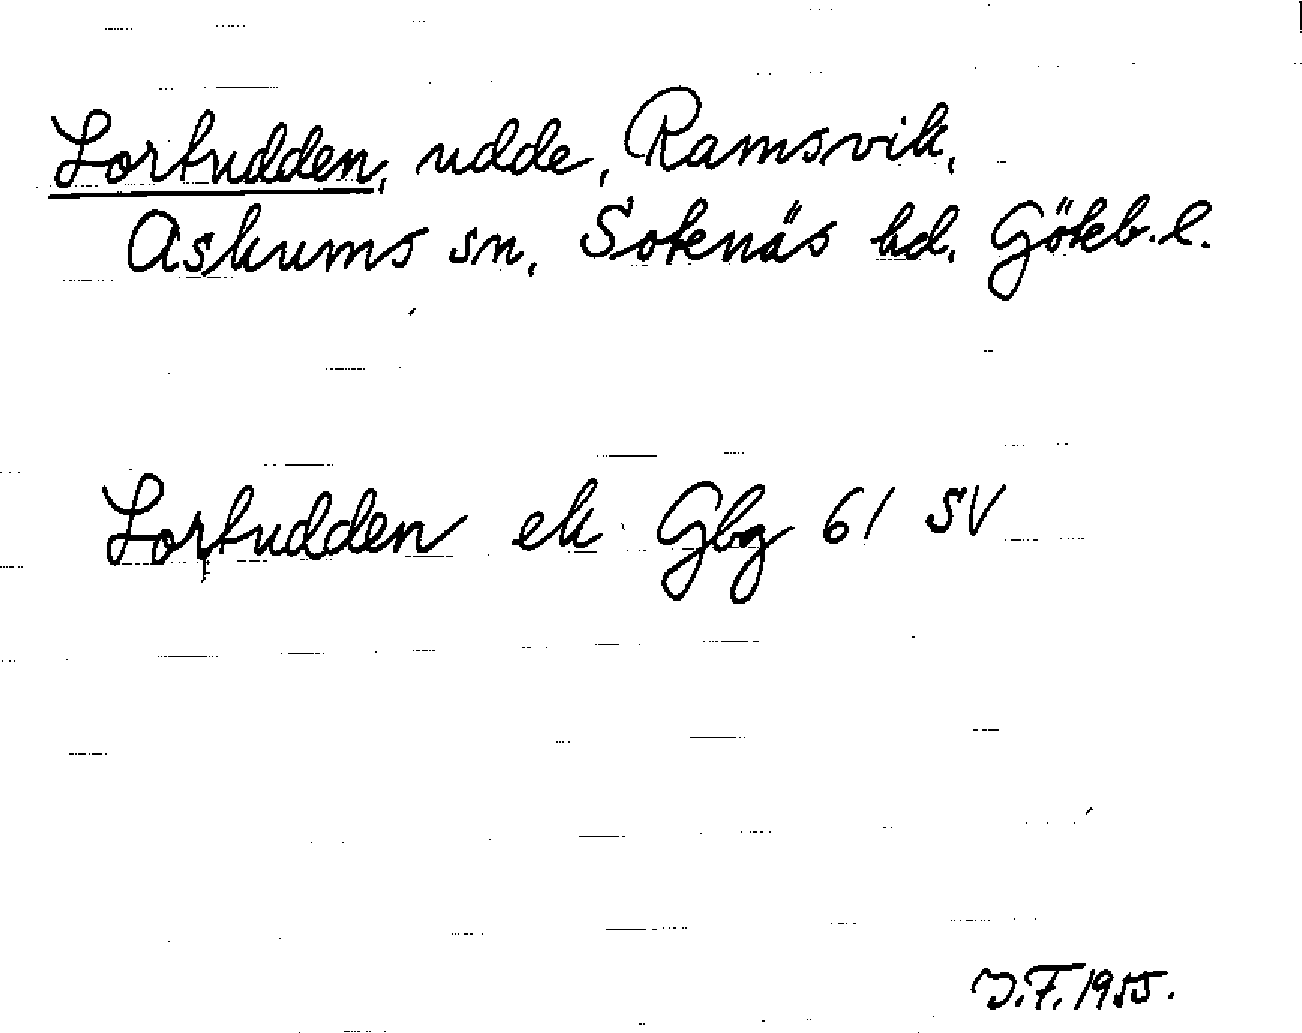 Lortudden, udde, Ramsvik,
Askums sn, Sotenäs hd. Göteb. l.
Lortudden ek Gbg 61 SV
J.F. 1955.